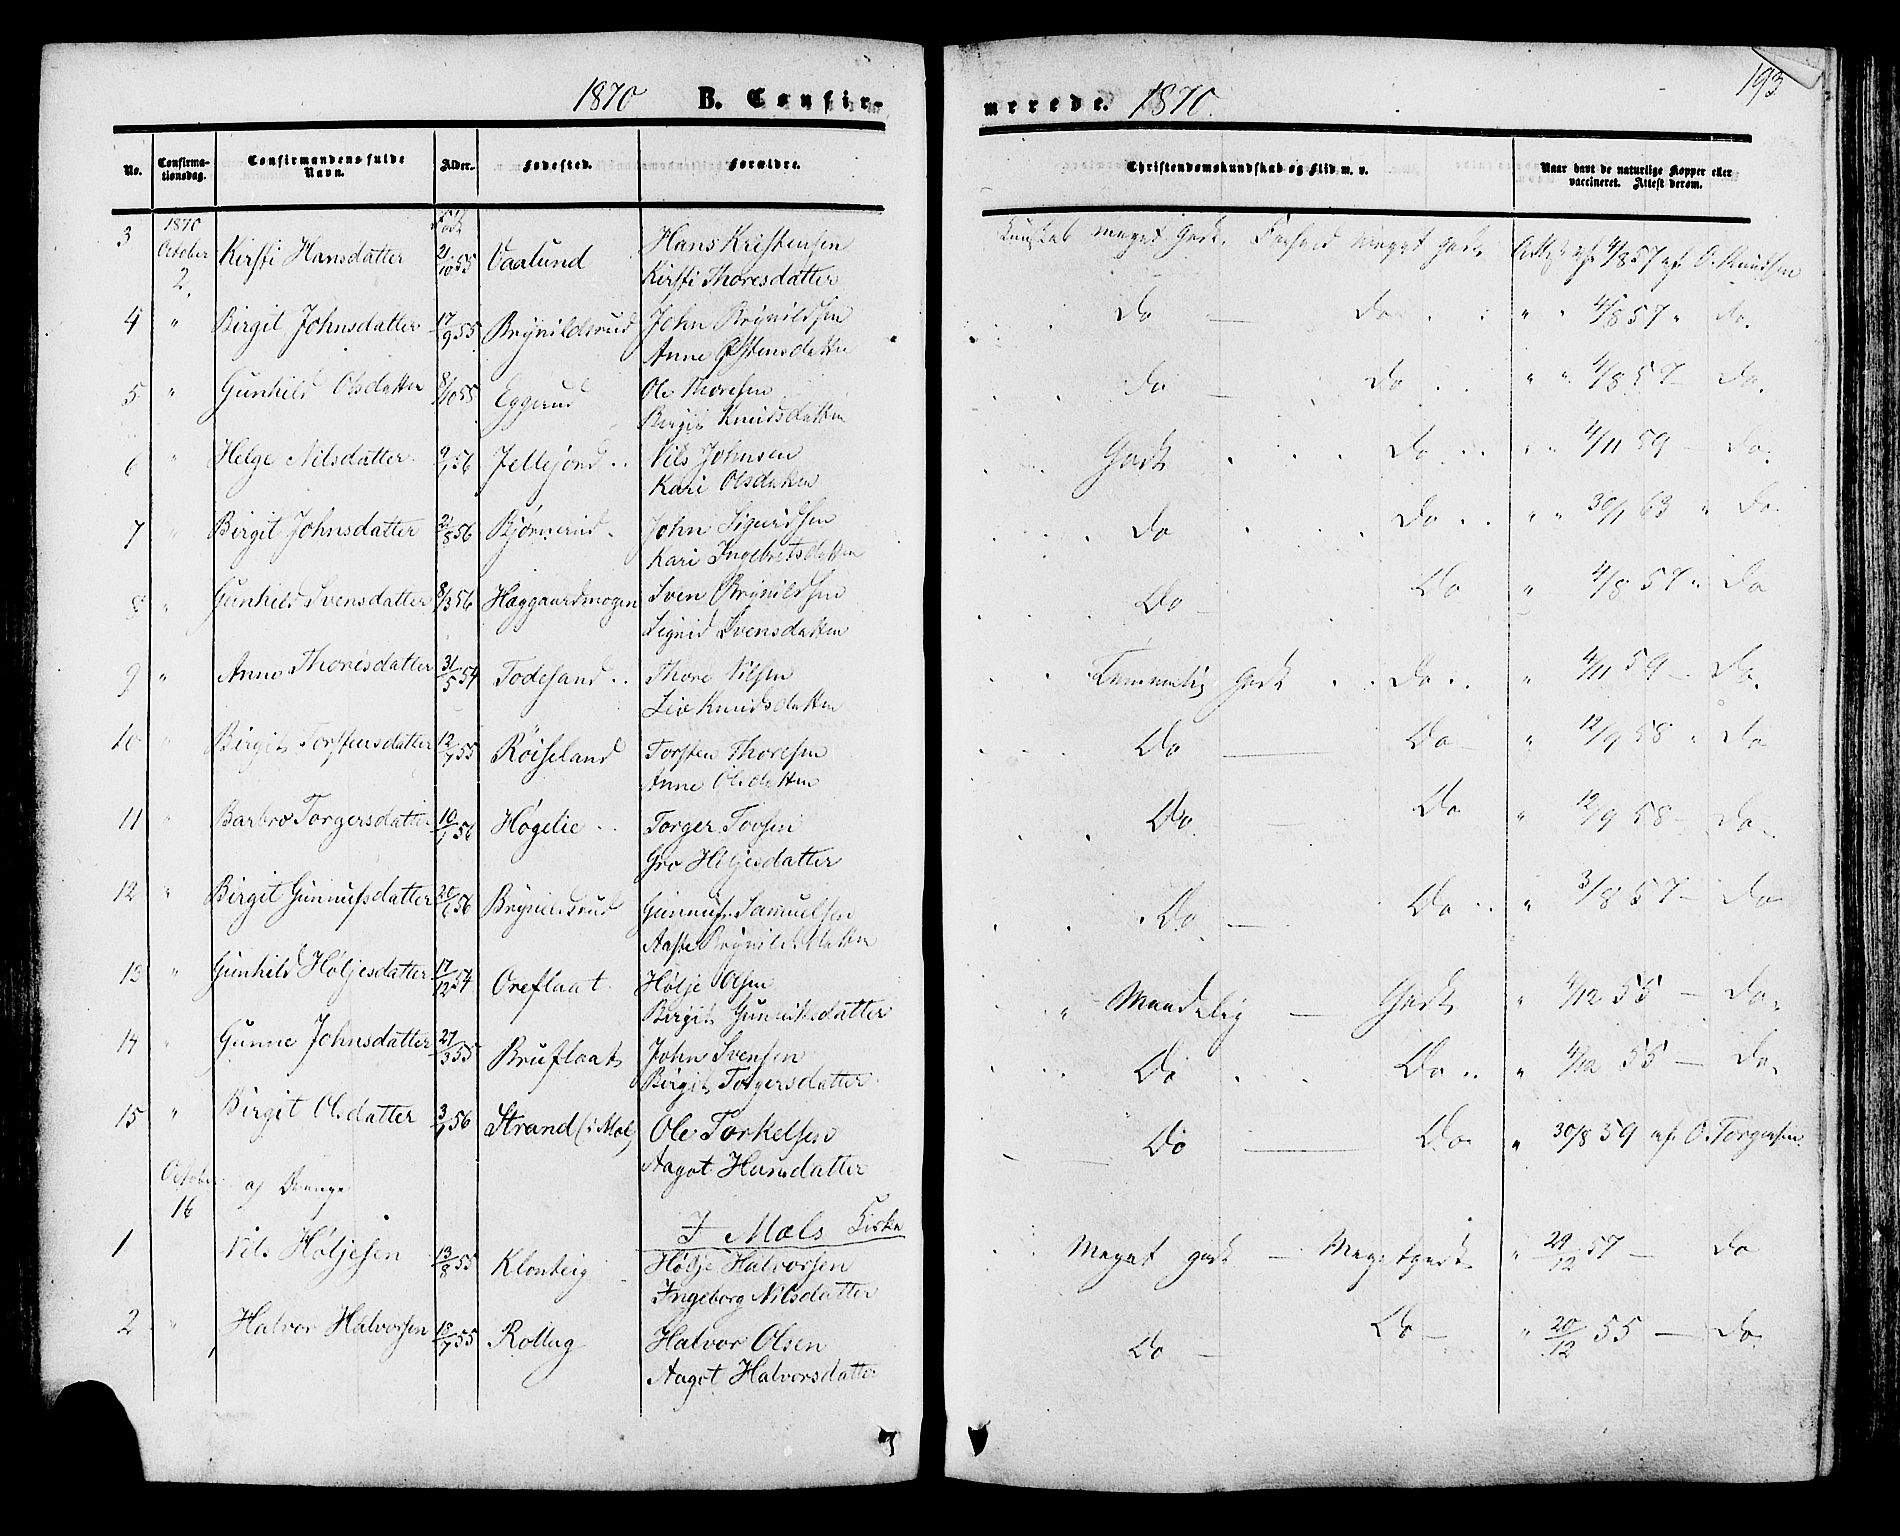 1870 B. Confir-
merede. 1870.
193
No.
Confirma-
tionsdag.
Confirmandens fulde
Navn.
Alder.
Fødested.
Forældre.
Christendomskundskab og Flid m. v.
Naar havt de naturlige Kopper eller
vaccineret. Attest derom.
1870
3 October 2. Kirsti Hansdatter 21/10 55 Vaalund Hans Kristensen
Kirsti Thoresdatter
Kundskab meget Godt. Forhold meget godt. 4/8 57 af O. Knudsen
4 " Birgit Johnsdatter 17/9 55 Brynildsrud John Brynildsen
Anne Østensdatter
Do — Do " 4/8 57 " Do.
5 " Gunhild Olsdatter 8/10 55 Eggerud Ole Thoresen
Birgit Knudsdatter
Do — Do " " 4/8 57 — Do.
6 " Helge Nilsdatter 9/1 56 Jellejord Nils Johnsen
Kari Olsdatter
Godt Do " " 4/11 59 — Do.
7 " Birgit Johnsdatter 21/8 56 Bjørnerud John Sigurdsen
Kari Ingebretsdatter
Do Do " " 30/1 63 " Do.
8 " Gunhild Svensdatter 8/3 56 Haggaardmogen Sven Brynildsen
Signid Svensdatter
Do — Do " 4/8 57 " Do
9 " Anne Thoresdatter 31/5 54 Todesand Thore Nilsen
Liv Knudsdatter
Temmelig Godt Do " 4/11 59 — Do.
10 " Birgit Torstensdatter 12/7 55 Röiseland Torsten Thoresen
Anne Olsdatter
Do — Do " 12/9 58 " Do
11 " Barbro Torgersdatter 10/1 56 Høgelie Torger Tovsen
Gro Høljesdatter
Do. — Do " 12/9 58 — Do.
12 " Birgit Gunnufsdatter 56 Brynildsrud Gunnuf Samuelsen
Aaste Brynildsdatter
Do. — Do " 3/8 57 — Do
13 " Gunhild Høljesdatter 17/12 54 Oreflaat Hölje Olsen
Birgit Gunnufsdatter
" Maadelig — Godt " 4/12 55 — Do.
14 " Gunne Johnsdatter 27/3 55 Bruflaat John Svensen
Birgit Torgersdatter
Do Do " 4/12 55 — Do.
15 " Birgit Olsdatter 56 Strand (i Mæl) Ole Torkelsen
Aagot Hansdatter
Do — Do " 30/8 59 af O. Torgersen
October 16 a) Drenge
I Mæls Kirke
1 Nils Höljesen 13/8 55 Klonteig Hölje Halvorsen
Ingeborg Nilsdatter
Meget godt — Meget godt " 29/12 57 — Do
2 " Halvor Halvorsen 18/7 55 Rollag Halvor Olsen
Aagot Halvorsdatter
Do — Do — " 20/12 55 — Do.